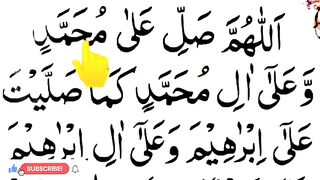 اَللّٰهُمَّ صَلِّ عَلٰى مُحَمَّدٍ
وَّعَلٰٓى اٰلِ مُحَمَّدٍ كَمَا صَلَّيْتَ
عَلٰٓى اِبْرٰهِيْمَ وَعَلٰٓى اٰلِ اِبْرٰهِيْمَ
SUBSCRIBE!